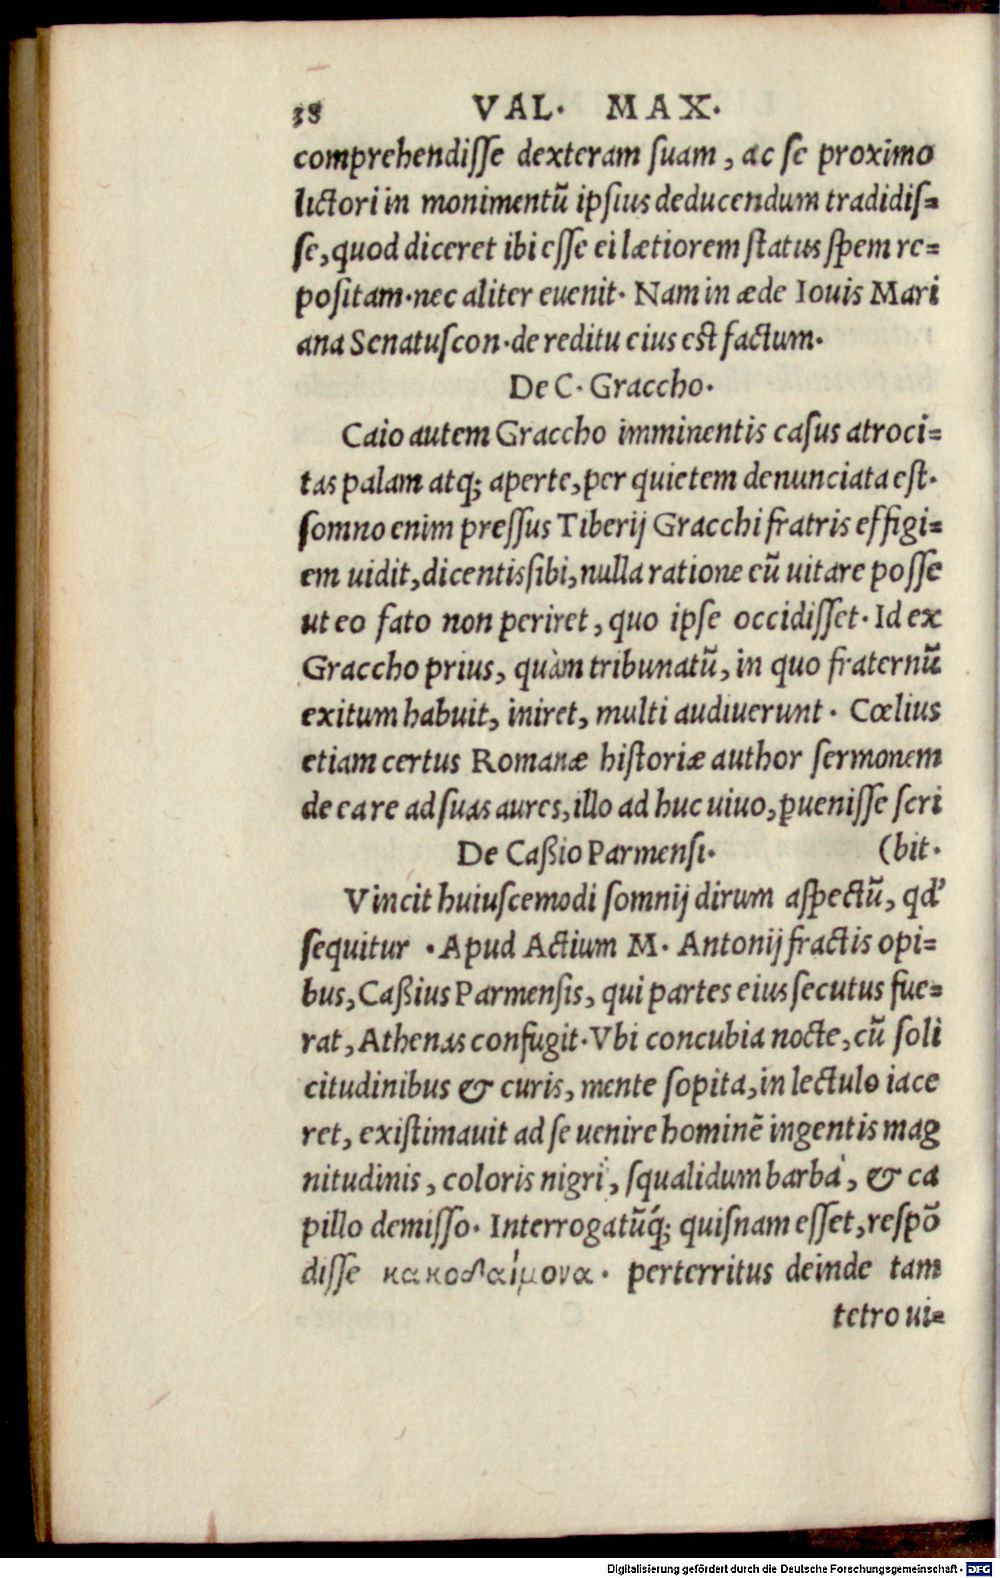 38 VAL. MAX.
comprehendisse dexteram suam, ac se proximo
lictori in monimentū ipsius deducendum tradidis=
se, quod diceret ibi esse ei lætiorem status spem re=
positam. nec aliter euenit. Nam in æde Iouis Mari
ana Senatuscon. de reditu eius est factum.
De C. Graccho.
Caio autem Graccho imminentis casus atroci=
tas palam atq; aperte, per quietem denunciata est.
somno enim pressus Tiberij Gracchi fratris effigi=
em uidit, dicentis sibi, nulla ratione eū uitare posse
ut eo fato non periret, quo ipse occidisset. Id ex
Graccho prius, quàm tribunatū, in quo fraternū
exitum habuit, iniret, multi audiuerunt. Cœlius
etiam certus Romanæ historiæ author sermonem
de ea re ad suas aures, illo ad huc uiuo, ꝑuenisse scri
De Caßio Parmensi. (bit.
Vincit huiuscemodi somnij dirum aspectū, qd'
sequitur. Apud Actium M. Antonij fractis opi=
bus, Caßius Parmensis, qui partes eius secutus fue=
rat, Athenas confugit. Vbi concubia nocte, cū soli
citudinibus & curis, mente sopita, in lectulo iace
ret, existimauit ad se uenire hominē ingentis mag
nitudinis, coloris nigri, squalidum barbà, & ca
pillo demisso. Interrogatūq́; quisnam esset, respō
disse κακοδαίμονα. perterritus deinde tam
tetro ui=
Digitalisierung gefördert durch die Deutsche Forschungsgemeinschaft - DFG